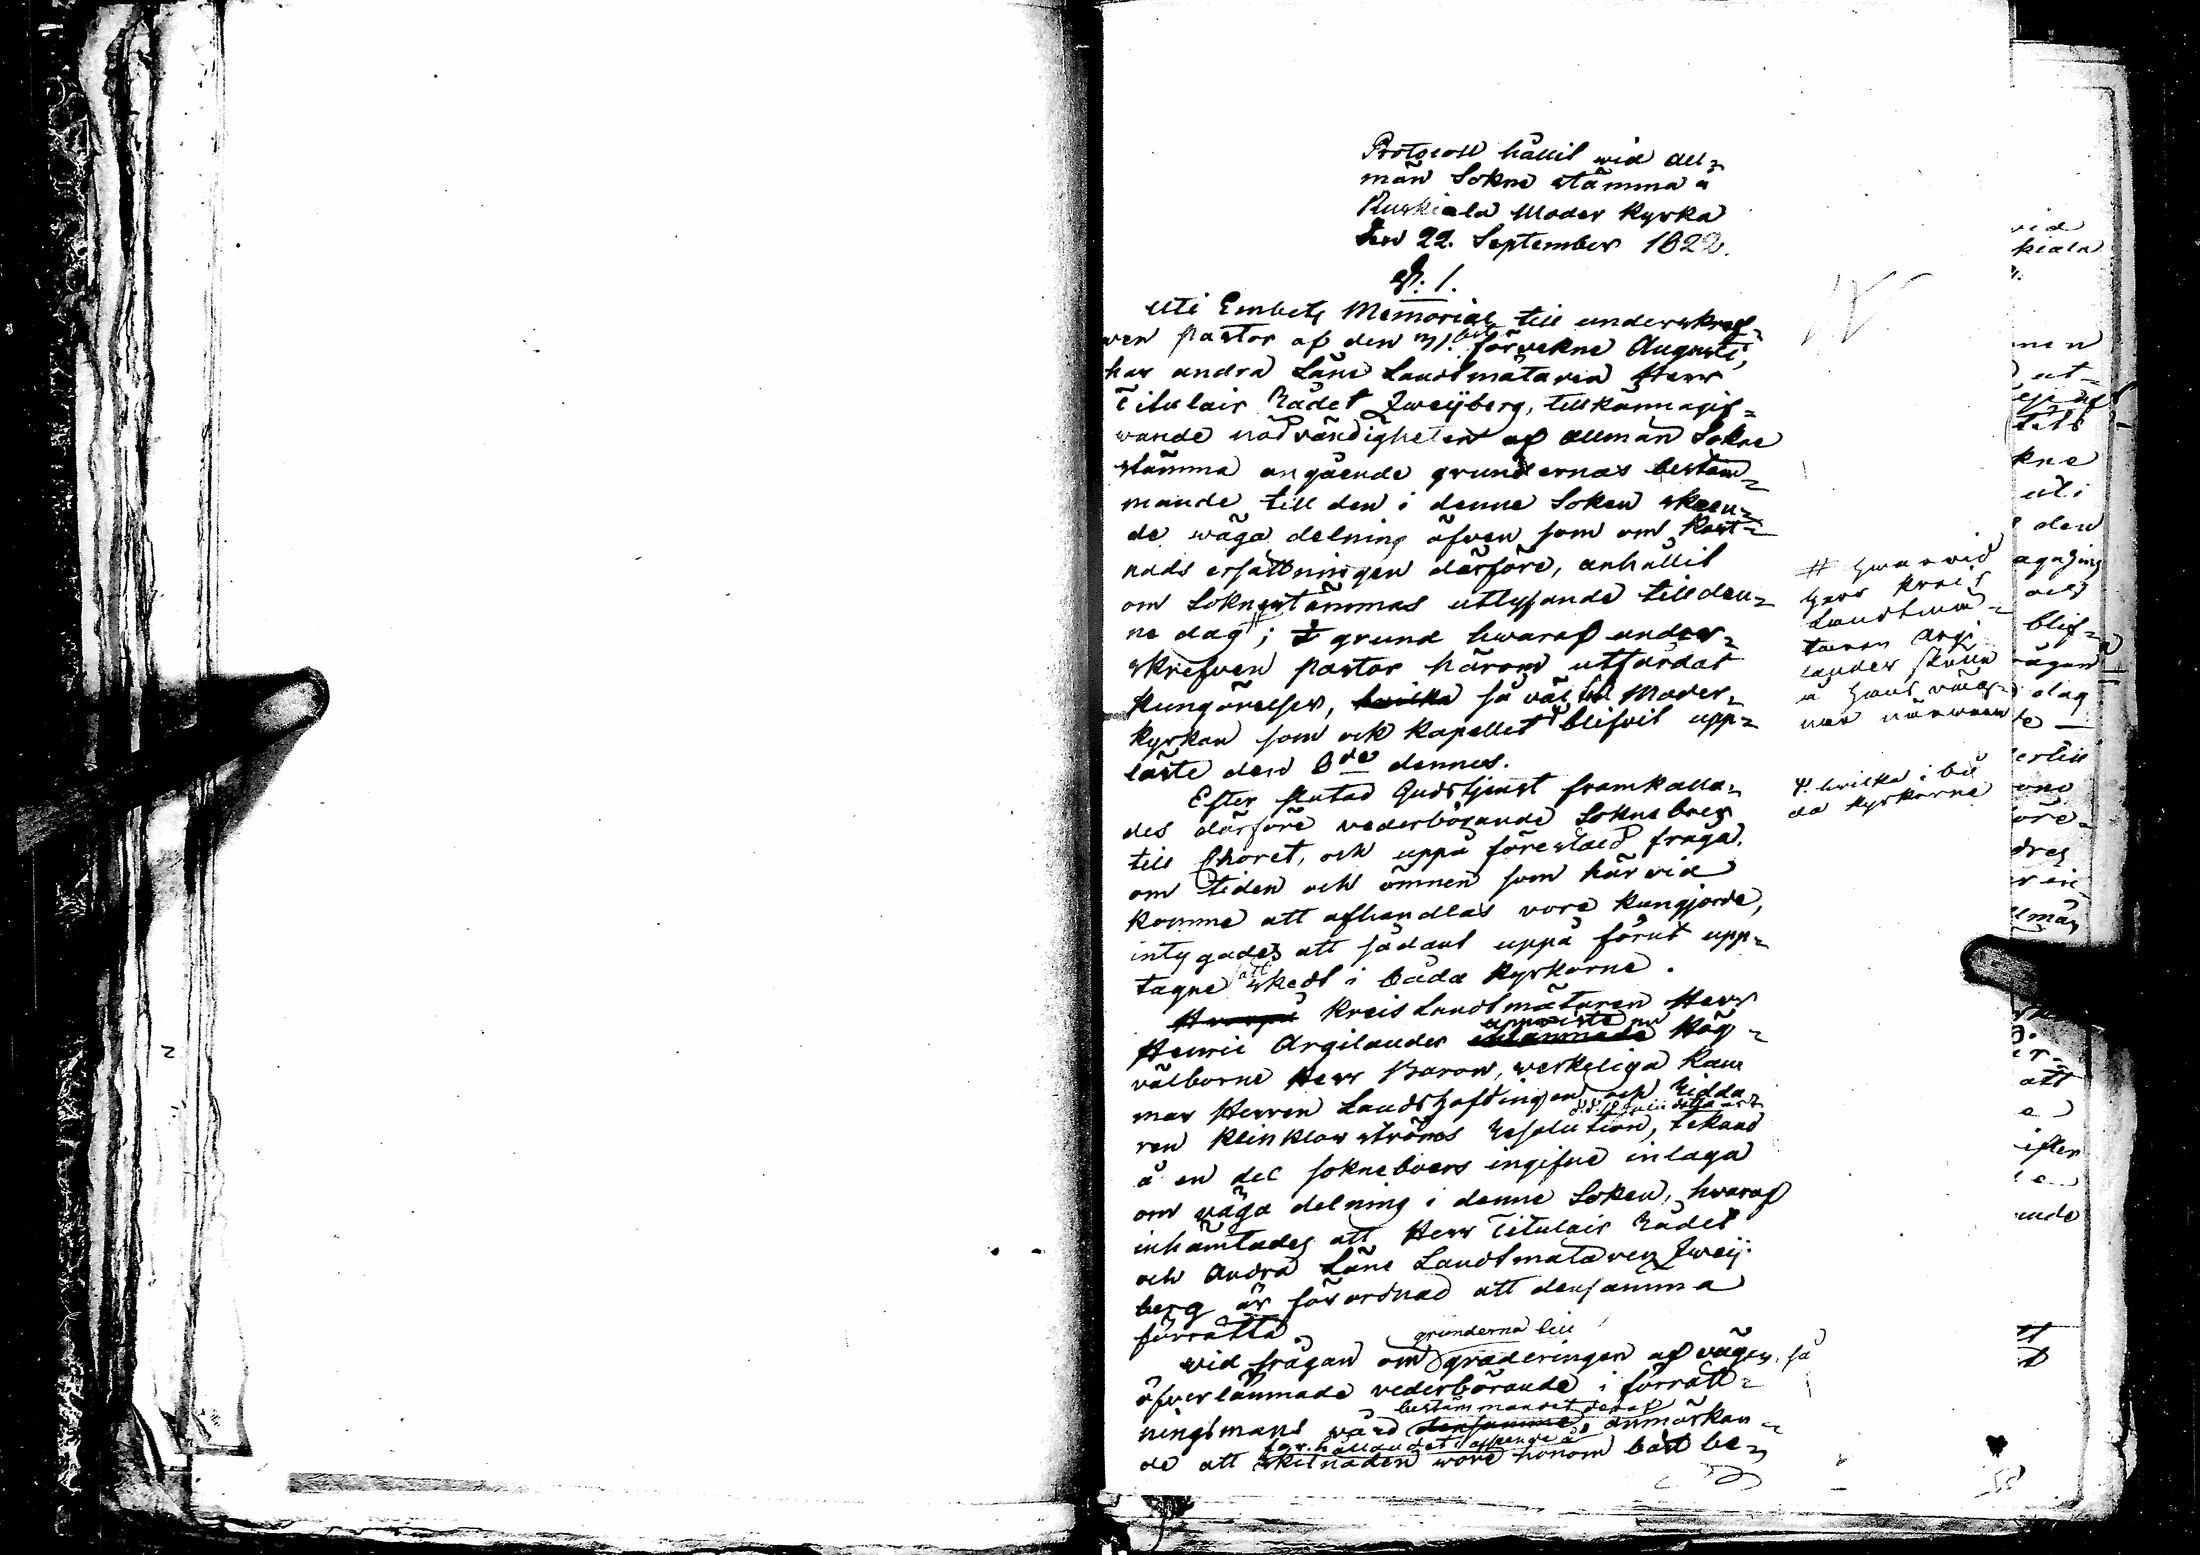 Protocoll hållit wid all=
män Sokne stämma å
Ruskiala Moder kyrka
den 22. September 1822.
§. 1.
Uti Embets Memorial till underskref=
ven Pastor af den 31. förvekne Augusti,
har andra Läne Landtmätaren Herr
Titulair Rådet Zweÿberg, tillkännagif=
wande nödvändigheten af allmän Sokne
stämma angående grundernas bestäm=
mande till den i denne Soken skeen=
de wäga delning äfven som om kost=
nads ersättningen därföre, anhållit
om Soknestämmas utlysande till den=
ne dag #; I grund hwaraf under=
skrefven pastor härom utfärdat
Kungörelser, hvilka så väl till Moder=
kyrkan som ock Kapellet Ψ blifvit upp=
läste den 8de dennes.
Efter slutad Gudstjenst framkalla=
des därföre vederbörande Sokneboer
till Choret, och uppå förestäld fråga,
om tiden och ämnen som härvid
komme att afhandlas vore kungjorde,
intygades att sådant uppå förut upp=
tagne sätt skedt i båda kyrkorne.
Hvarpå Kreis Landtmätaren Herr
Henric Argilander uppviste en Hög=
välborne Herr Baron, werkeliga Kam
mar Herren Landshöfdingen och Ridda
d. d. 19 Junii detta år
ren Klinkowströms Resolution, tekand
å en del sokneboers ingifne inlaga
om wäga delning i denne Soken, hvaraf
inhämtades att Herr Titulair Rådet
och Andra Läne Landtmätaren Zweÿ=
berg är förordnad att densamma
förrätta.
grunderna till
wid frågan om graderingen af vägen, så
öfverlämnade vederbörande i förrätt=
bestämmandet deraf
ningsmans wård densamma, anmärkan=
de att skilnaden wore honom bäst be=
# hwarvid
Herr Kreis
Landtmä=
taren Argi
lander
å hans väg=
nar närwar
Ψ. hvilka i bå
da kyrkorne